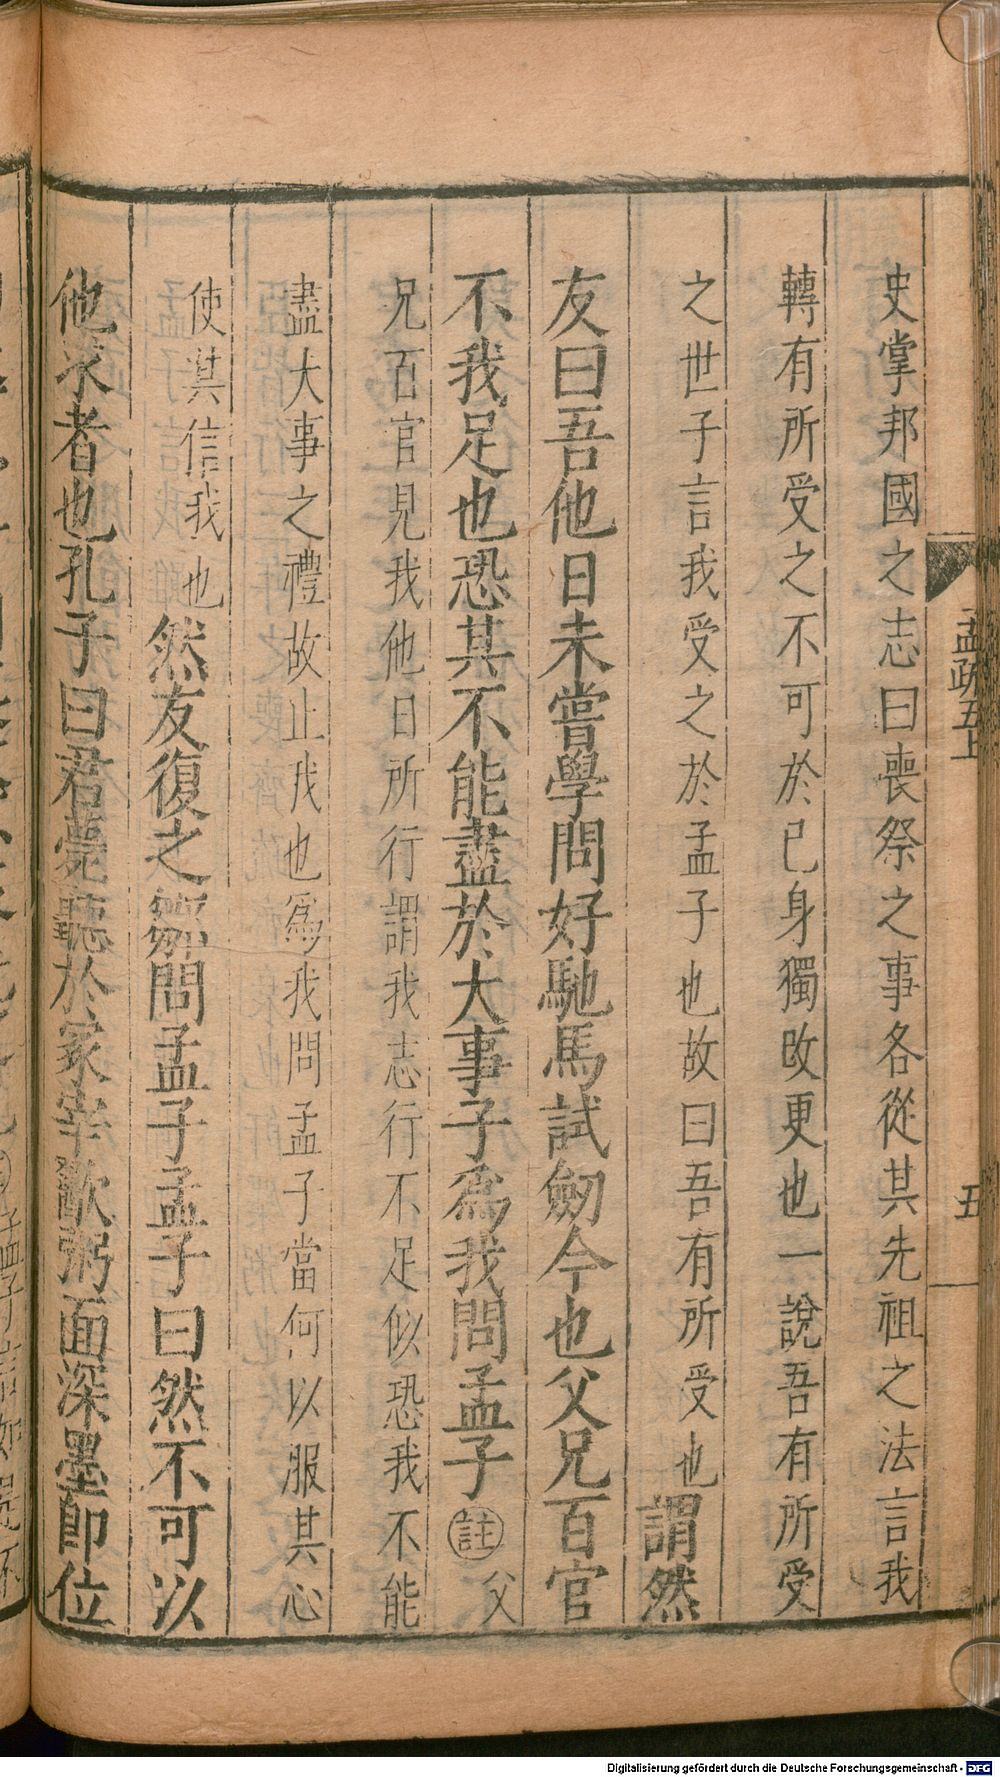 孟疏五上
五
史掌邦國之志曰喪祭之事各從其先祖之法言我
轉有所受之不可於己身獨改更也一說吾有所受
之世子言我受之於孟子也故曰吾有所受也謂然
友曰吾他日未嘗學問好馳馬試劒今也父兄百官
不我足也恐其不能盡於大事子為我問孟子註父
兄百官見我他日所行謂我志行不足似恐我不能
盡大事之禮故止我也為我問孟子當何以服其心
使其信我也然友復之鄒問孟子孟子曰然不可以
他求者也孔子曰君薨聽於冢宰歠粥面深墨卽位
Digitalisierung gefördert durch die Deutsche Forschungsgemeinschaft - DFG